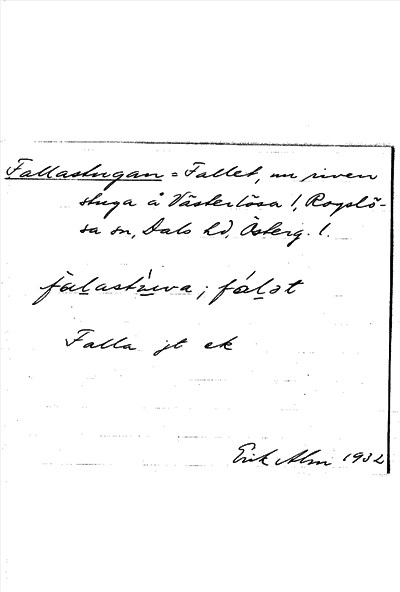 Fallastugan = Fallet, nu riven
stuga å Västerlösa 1, Rogslö-
sa sn, Dals hd, Österg. l.
fàlastúva; fálət
Falla jt ek
Erik Alm 1932